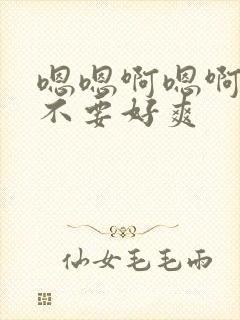 嗯嗯啊嗯啊
不要好爽
仙女毛毛雨